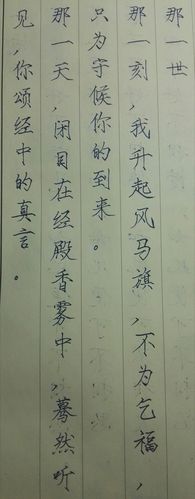 那一世
那一刻，我升起风马旗，不为乞福，
只为守候你的到来。
那一天，闭目在经殿香雾中，蓦然听
见，你颂经中的真言。